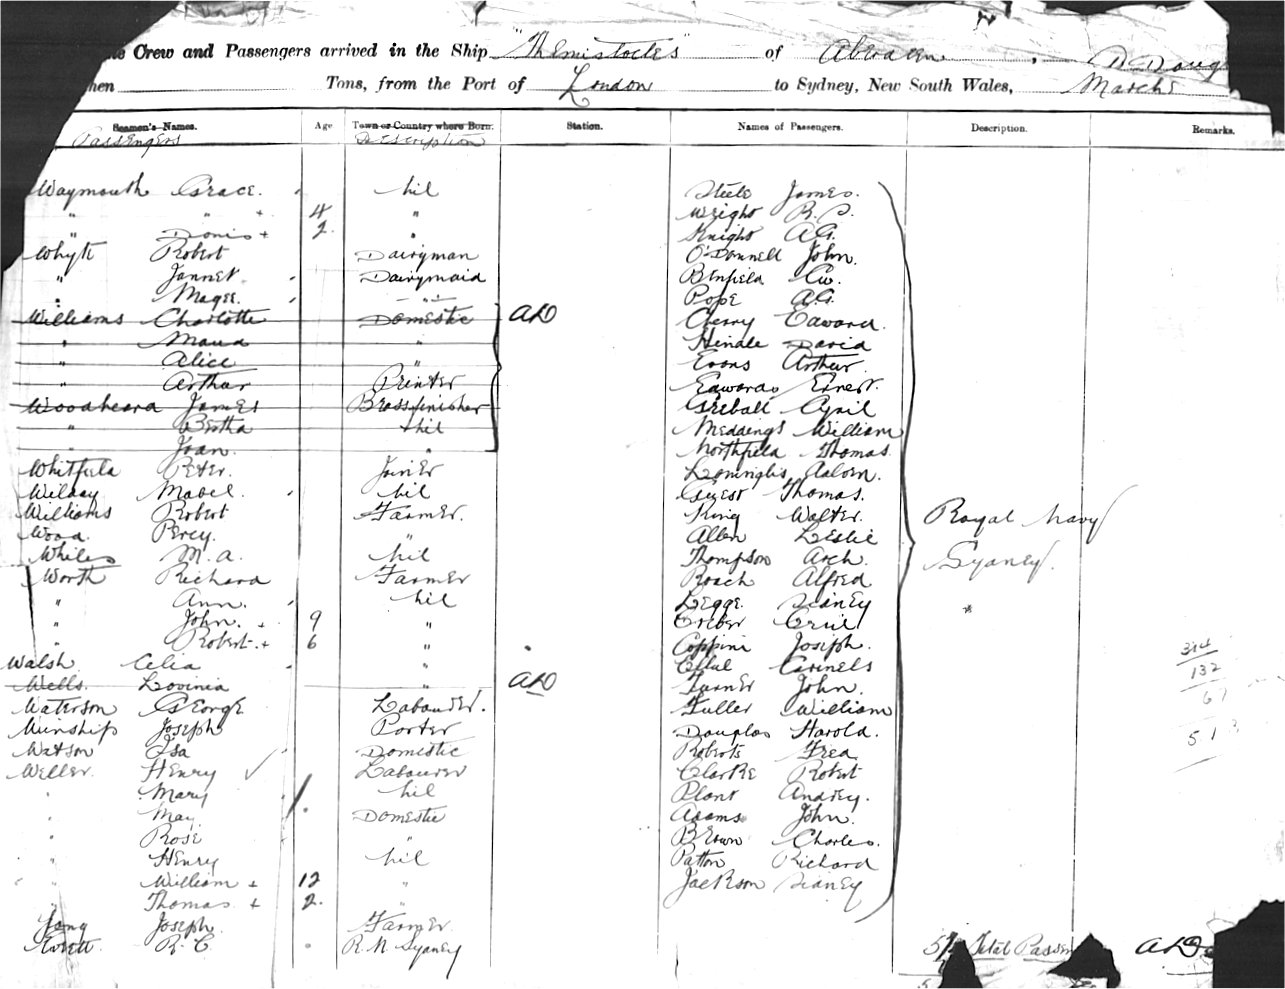 Crew and Passengers arrived in the Ship "Themistocles" of Aberdeen, D Doug
Tons, from the Port of London to Sydney, New South Wales, March
Seamen's Names. Age Town or Country where Born. Station. Names of Passengers. Description. Remarks.
Passengers Description
Waymouth Grace. Nil Steele James.
" " + 4 " Wright R.
" Doris + 2 " Knight A.G.
Whyte Robert Dairyman O'Donnell John.
" Jannet Dairymaid Binfield
" Magee. " Pope A.G.
Williams Charlotte Domestic ALD Cherry Edward.
" Maud " Hindle David
" Alice " Evans Arthur.
" Arthur Printer Edwards Ernest.
Woodheard James Brassfinisher April
" Bertha Nil Meddings William
" Joan. " Northfield Thomas.
Whitfield Peter. Joiner
Mabel. Nil Guest Thomas.
Williams Robert Farmer. King Walter. Royal Navy
Wood. Percy. " Allen Leslie
Whiles M. A. Nil Thompson Arch. Sydney.
Worth Richard Farmer Roach Alfred
" Ann. Nil Legge. Sidney "
" John. + 9 "
" Robert. + 6 " Coppini Joseph. 314
Walsh Celia " 132
Wells. Lovinia " ALD Turner John. 67
Waterson George Labourer. Fuller William
Joseph Porter Douglas Harold. 513
Watson Isa Domestic Roberts Fred
Weller. Henry Labourer Clarke Robert
" Mary Nil Plant
" May Domestic Adams John.
" Rose " Brown Charles.
" Henry Nil Patton Richard
" William + 12 " Jackson Sidney
" Thomas + 2 "
Joseph. Farmer.
R. C. R. N Sydney Total Passen ALD